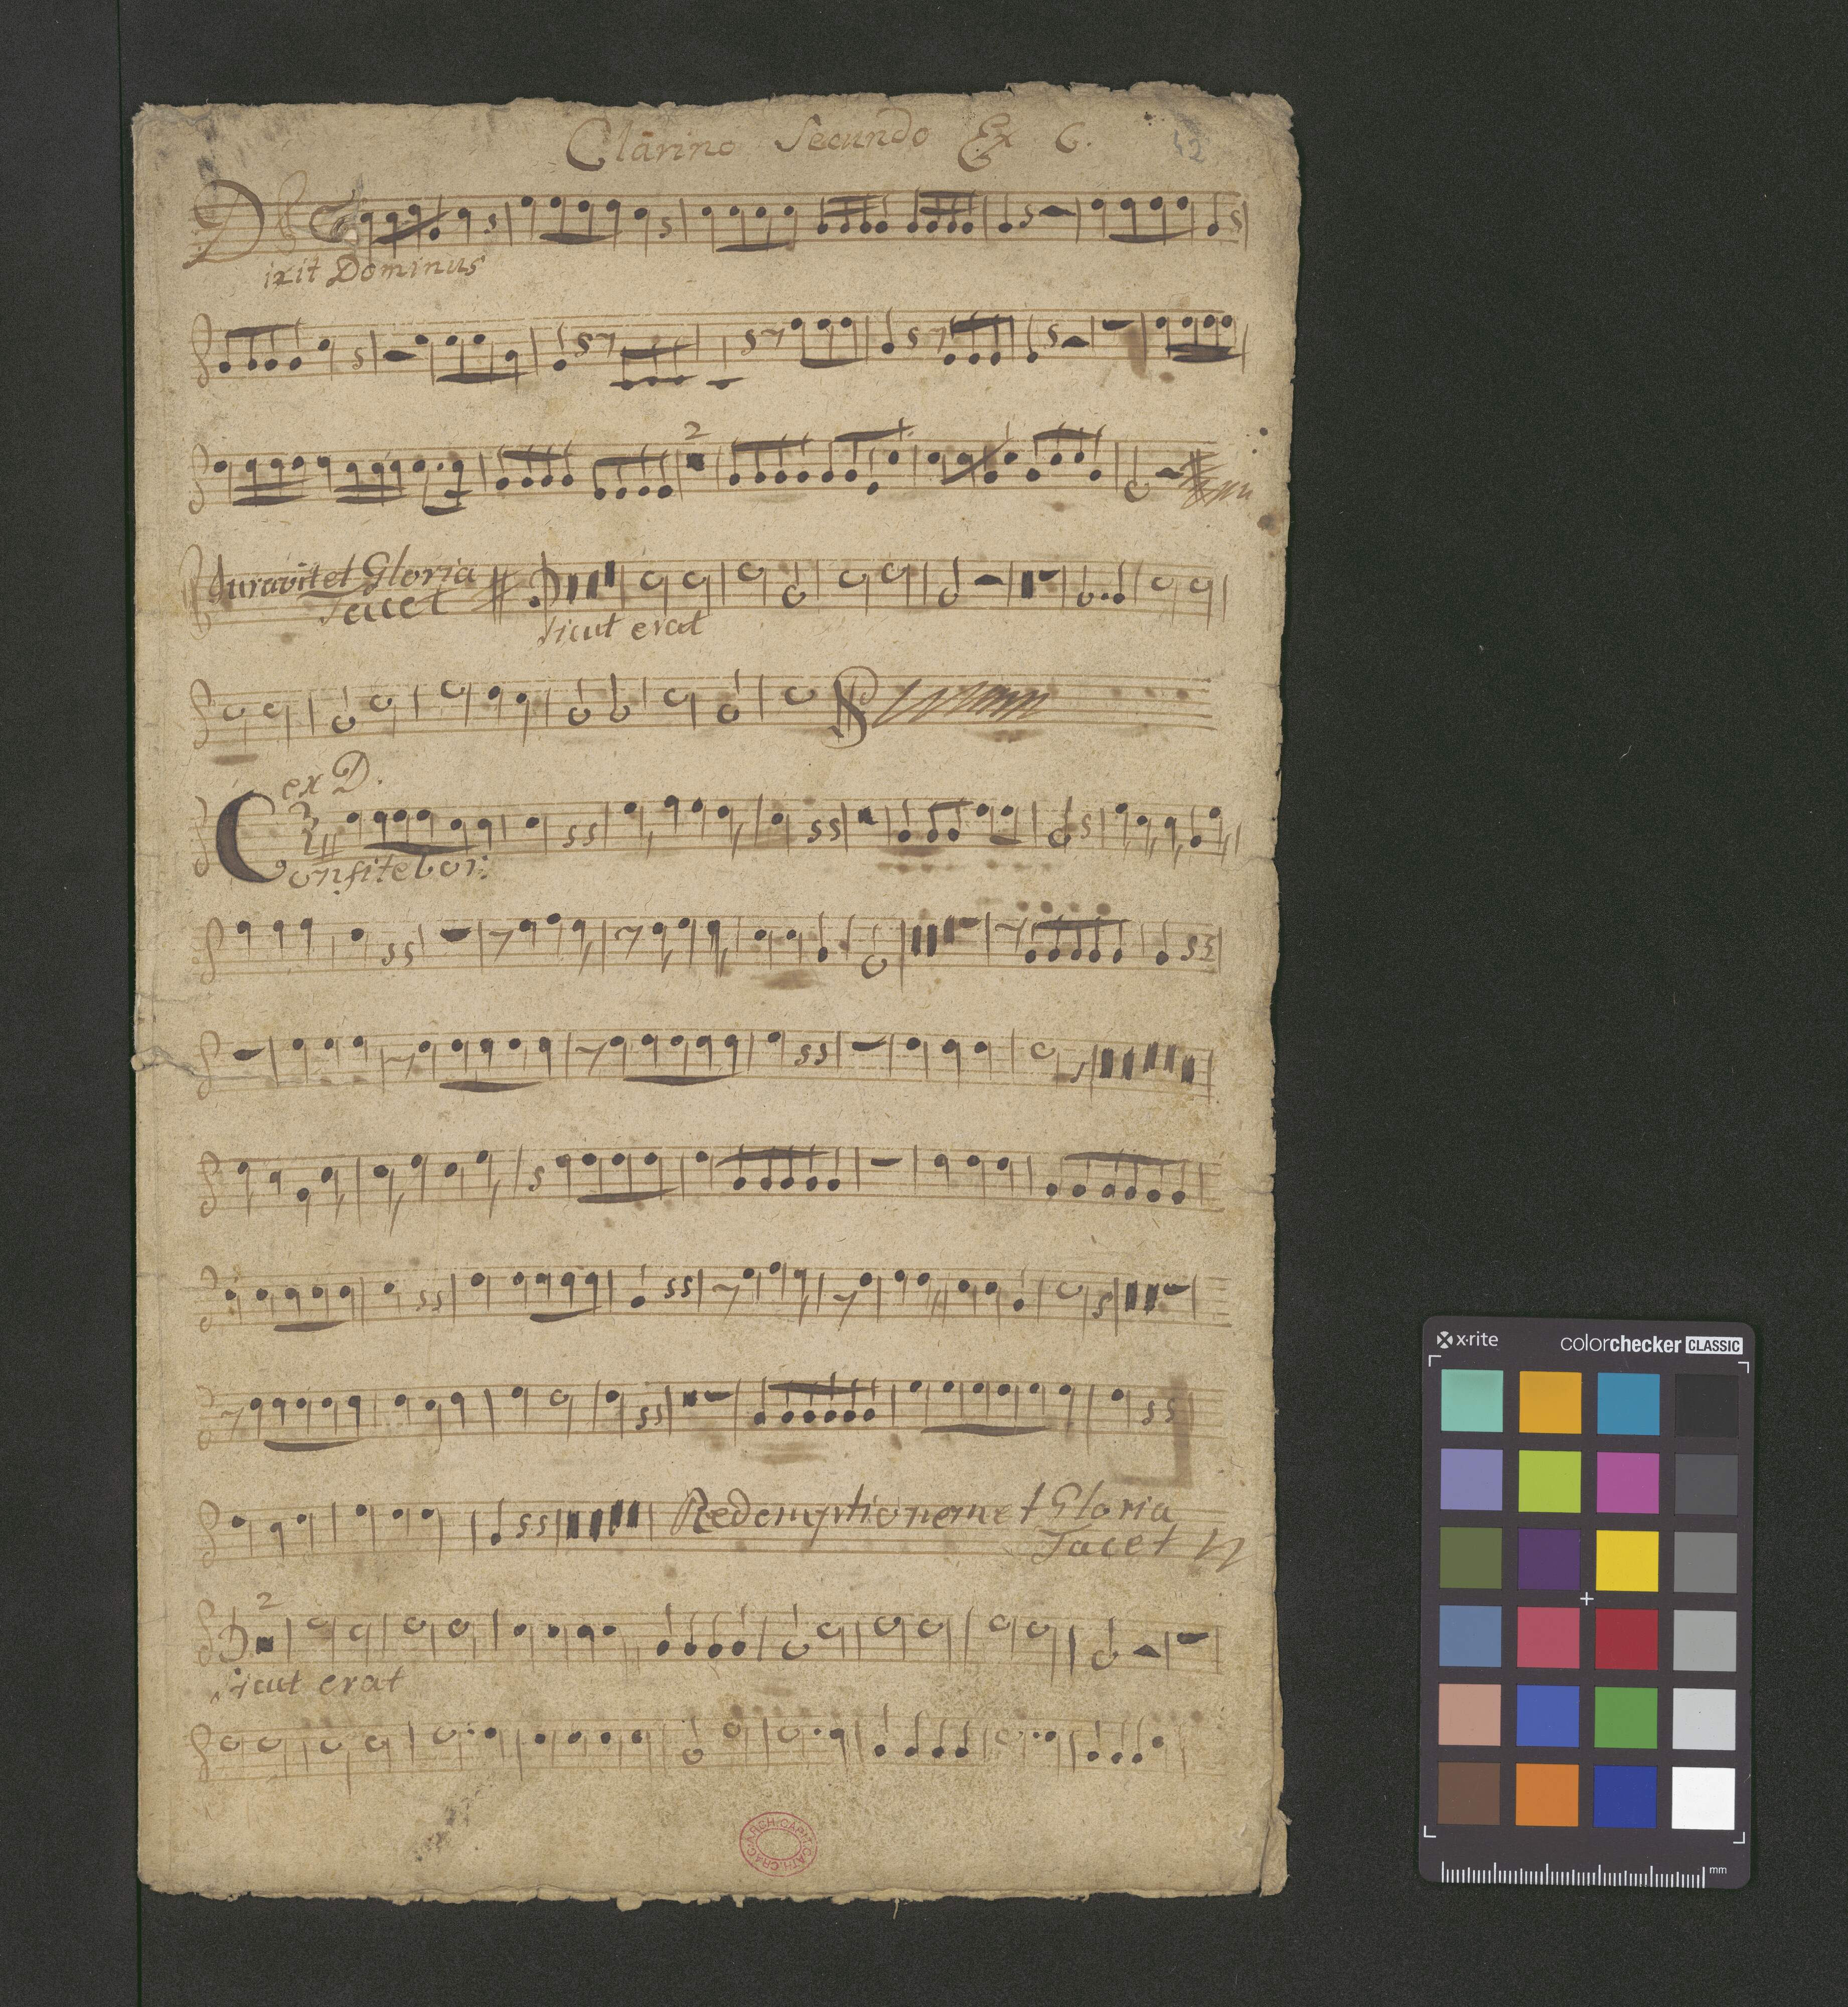 Clarino Secundo Ex C.
42
Dixit Dominus
2
Juravit et Gloria
Tacet
Sicut erat
ex D.
Confitebor:
Redemptionem et Gloria
Tacet
2
Sicut erat
ARCH. CAPIT. CATH. CRAC.
x-rite
colorchecker CLASSIC
mm